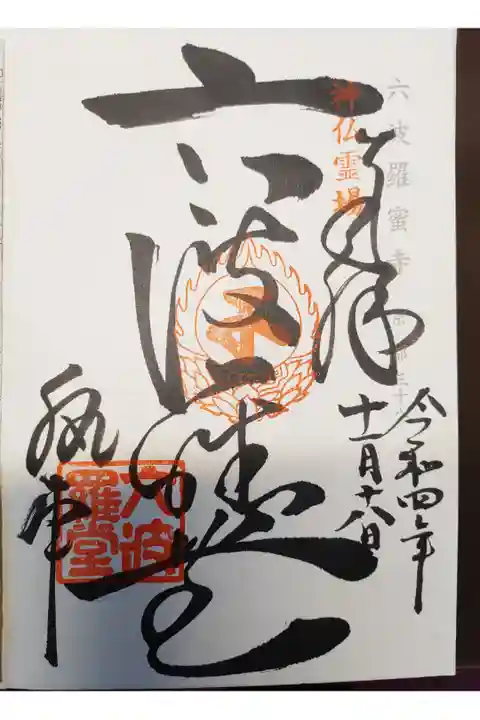 六波羅蜜寺
神仏霊場
奉拝
令和四年
十一月十八日
六波羅堂
執事
六波羅堂